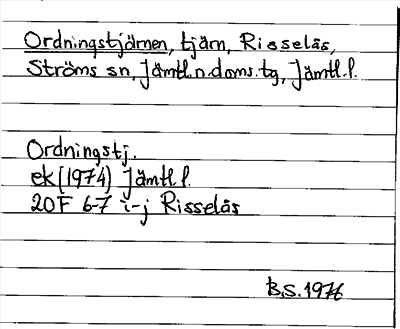 Ordningstjärnen, tjärn, Risselås,
Ströms sn, Jämtl.n.doms.tg, Jämtl.l.
Ordningstj.
ek (1974) Jämtl.l.
20F 6-7 i-j Risselås
B.S. 1976